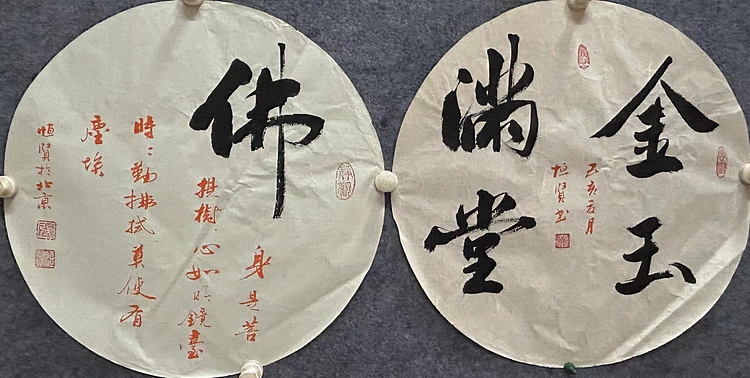 佛
身是菩
提樹心如明鏡臺
時〻勤拂拭莫使有
塵埃
恒贤於北京
金玉
满堂
己亥夏月
恒贤书